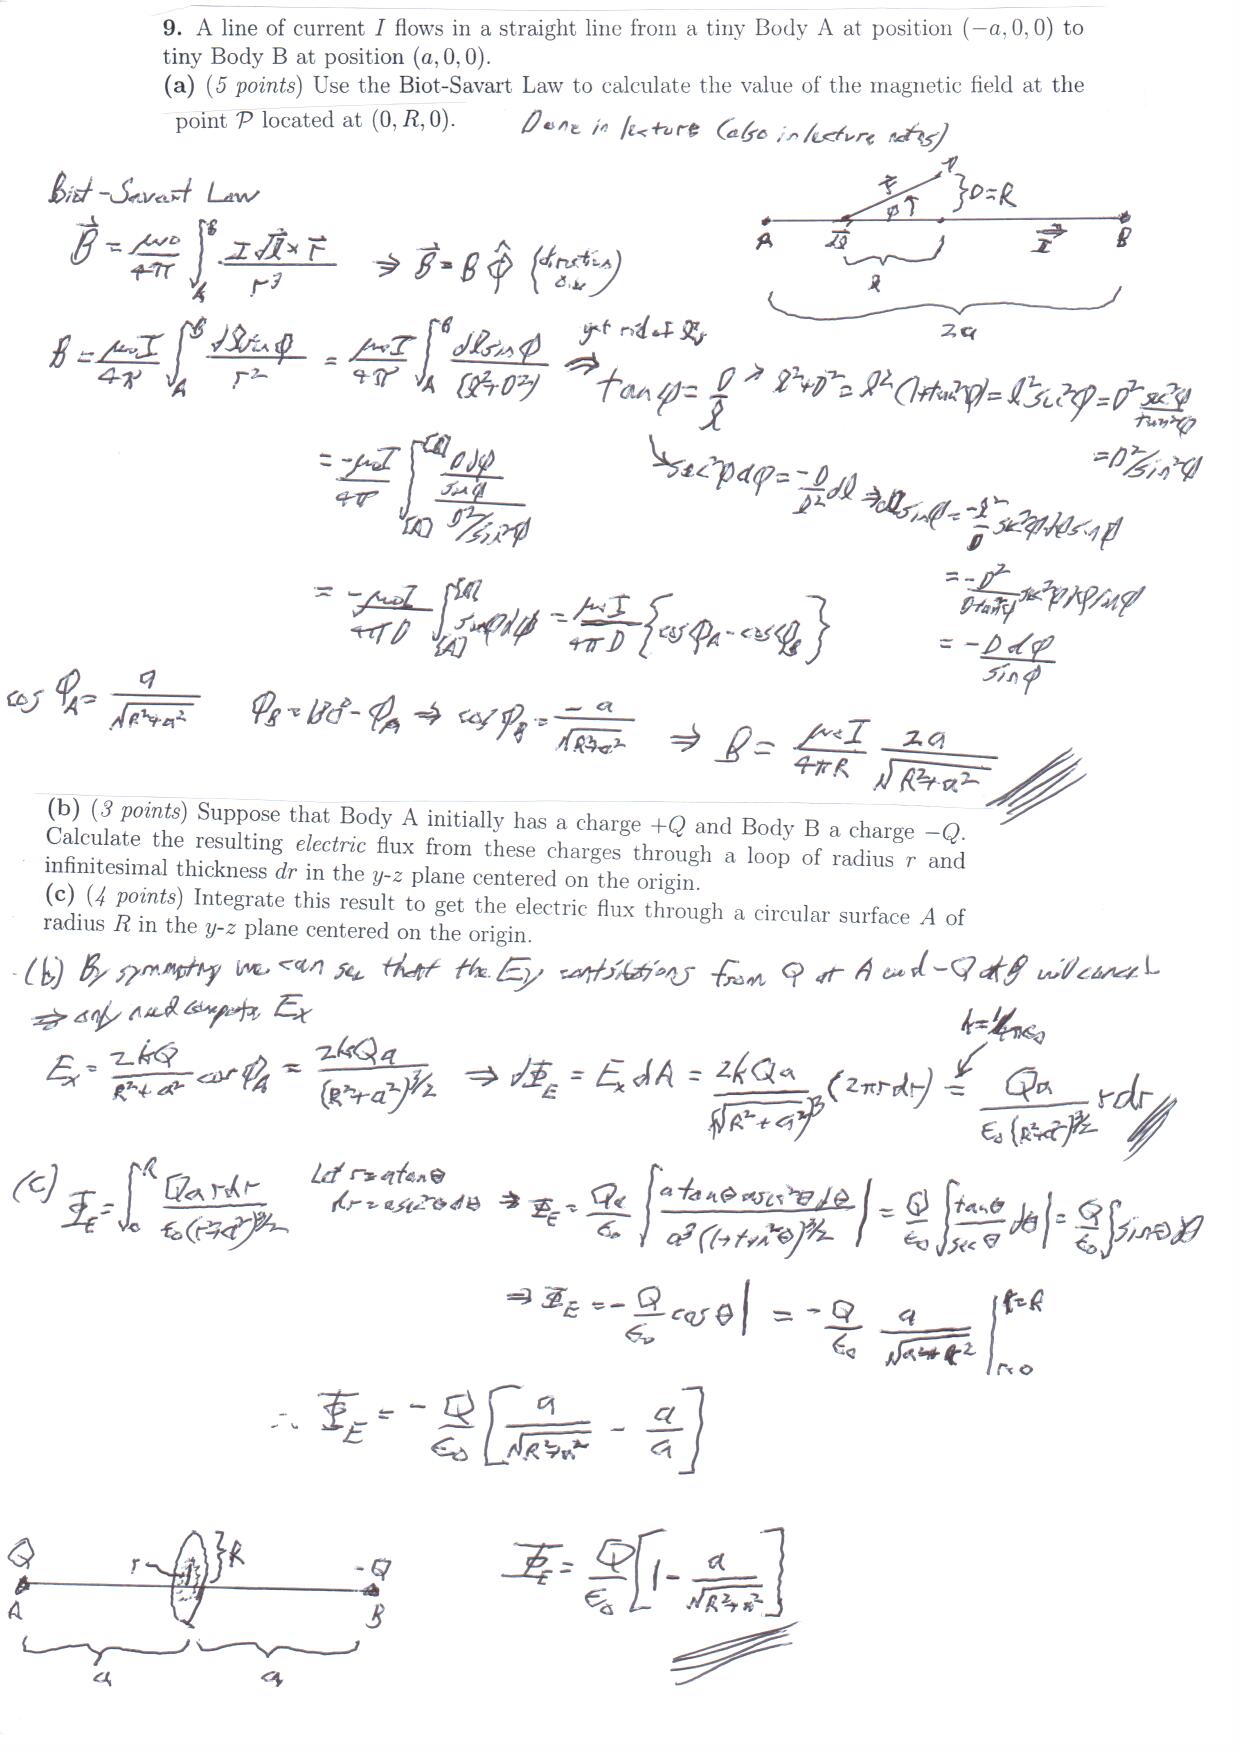 9. A line of current I flows in a straight line from a tiny Body A at position (−a, 0, 0) to
tiny Body B at position (a, 0, 0).
(a) (5 points) Use the Biot-Savart Law to calculate the value of the magnetic field at the
point P located at (0, R, 0). Done in lecture (also in lecture notes)
Biot-Savart Law
}D=R
A dl I B
l
2a
B = μ₀/4π ∫_A^B I dl × r / r³ ⇒ B = B φ̂
B = μ₀I/4π ∫_A^B dl sinφ / r² = μ₀I/4π ∫_A^B dl sinφ / (l²+D²) ⇒ get rid of l's
tanφ = D/l ⇒ l²+D² = l²(1+tan²φ) = l² sec²φ = D² sec²φ/tan²φ
= D²/sin²φ
sec²φ dφ = −D/l² dl ⇒ dl sinφ = −l²/D sec²φ dφ sinφ
= −μ₀I/4π ∫_[A]^[B] (D dφ / sinφ) / (D²/sin²φ)
= −D²/(D tan²φ) sec²φ dφ sinφ
= −μ₀I/4πD ∫_[A]^[B] sinφ dφ = μ₀I/4πD {cosφ_A − cosφ_B}
= −D dφ / sinφ
cos φ_A = a/√(R²+a²) φ_B = 180° − φ_A ⇒ cos φ_B = −a/√(R²+a²) ⇒ B = μ₀I/4πR 2a/√(R²+a²)
(b) (3 points) Suppose that Body A initially has a charge +Q and Body B a charge −Q.
Calculate the resulting electric flux from these charges through a loop of radius r and
infinitesimal thickness dr in the y-z plane centered on the origin.
(c) (4 points) Integrate this result to get the electric flux through a circular surface A of
radius R in the y-z plane centered on the origin.
(b) By symmetry we can see that the Ey contributions from Q at A and −Q at B will cancel
⇒ only need compute Ex
k = 1/4πε₀
Ex = 2kQ/(R²+a²) cos φ_A = 2kQa/(R²+a²)^3/2 ⇒ dΦ_E = Ex dA = 2kQa/(√(R²+a²))³ (2πr dr) = Qa/(ε₀(R²+a²)^3/2) r dr
(c) Φ_E = ∫_0^R Qa r dr / (ε₀(r²+a²)^3/2) Let r = a tanθ
dr = a sec²θ dθ ⇒ Φ_E = Qa/ε₀ ∫ a tanθ a sec²θ dθ / (a³(1+tan²θ)^3/2) | = Q/ε₀ ∫ tanθ/secθ dθ | = Q/ε₀ ∫ sinθ dθ
⇒ Φ_E = −Q/ε₀ cos θ | = −Q/ε₀ a/√(a²+r²) |_{r=0}^{r=R}
∴ Φ_E = −Q/ε₀ [a/√(R²+a²) − a/a]
Q r }R −Q
A B
a a
Φ_E = Q/ε₀ [1 − a/√(R²+a²)]